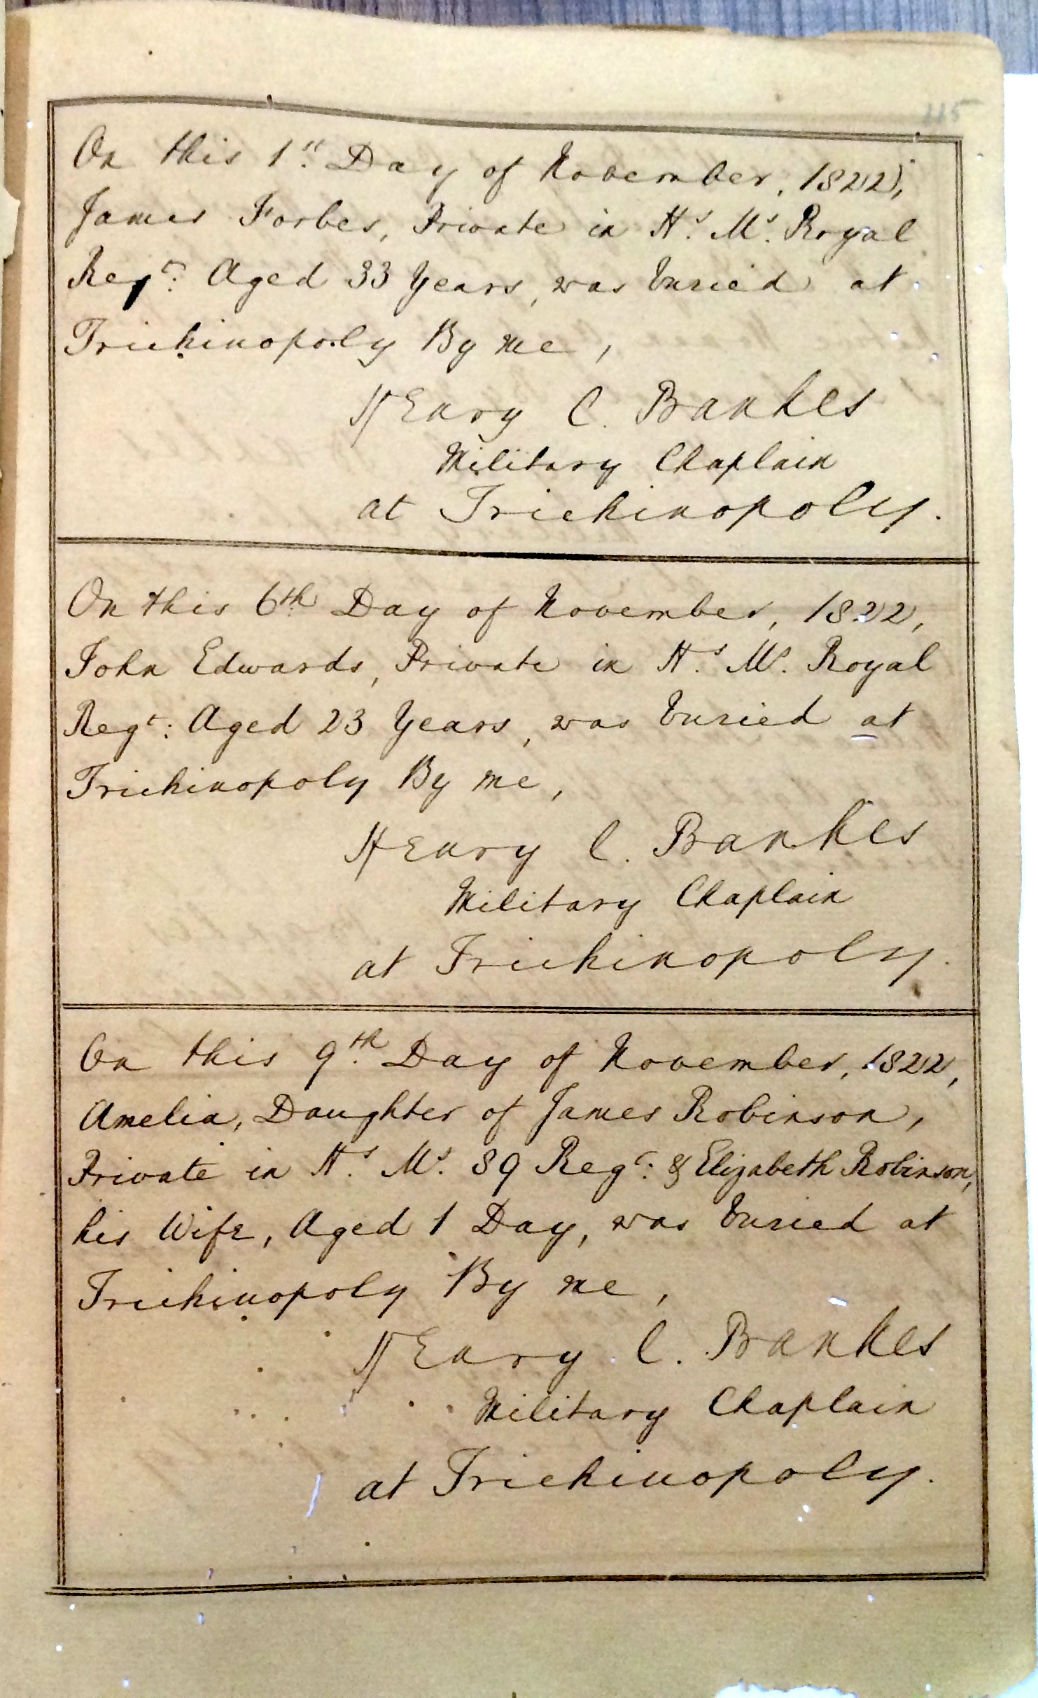 115
On this 1st. Day of November, 1822,
James Forbes, Private in H.s M.s Royal
Regt: Aged 33 Years, was buried at
Trichinopoly By me,
Henry C. Bankes
Military Chaplain
at Trichinopoly.
On this 6th. Day of November, 1822,
John Edwards, Private in H.s M.s Royal
Regt: Aged 23 Years, was buried at
Trichinopoly By me,
Henry C. Bankes
Military Chaplain
at Trichinopoly.
On this 9th. Day of November, 1822,
Amelia, Daughter of James Robinson,
Private in H.s M.s 89 Regt: & Elizabeth Robinson,
his Wife, Aged 1 Day, was buried at
Trichinopoly By me,
Henry C. Bankes
Military Chaplain
at Trichinopoly.